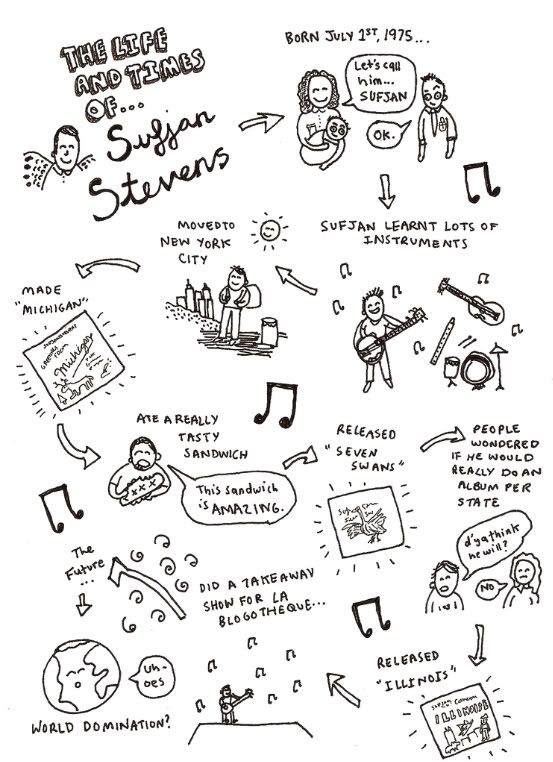 THE LIFE
AND TIMES
OF...
Sufjan
Stevens
BORN JULY 1ST, 1975...
Let's call
him...
SUFJAN
OK.
SUFJAN LEARNT LOTS OF
INSTRUMENTS
MOVED TO
NEW YORK
CITY
MADE
"MICHIGAN"
Michigan
ATE A REALLY
TASTY
SANDWICH
This sandwich
is AMAZING.
RELEASED
"SEVEN
SWANS"
PEOPLE
WONDERED
IF HE WOULD
REALLY DO AN
ALBUM PER
STATE
d'ya think
he will?
NO
RELEASED
"ILLINOIS"
ILLINOISE
DID A TAKEAWAY
SHOW FOR LA
BLOGOTHEQUE...
The
Future
...
Uh-
oes
WORLD DOMINATION?